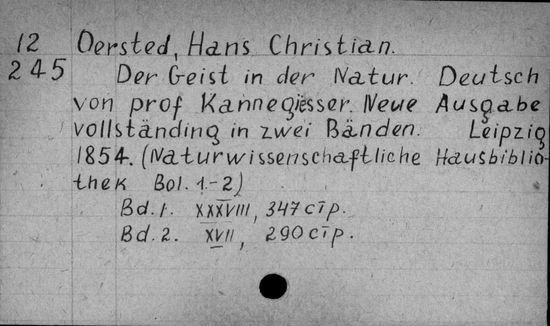 12 Oersted, Hans Christian.
245 Der Geist in der Natur. Deutsch
von prof Kannegiesser. Neue Ausgabe
vollständing in zwei Bänden. Leipzig
1854. (Naturwissenschaftliche Hausbiblio-
thek Bol. 1.-2)
Bd. 1. XXXVIII, 347 стр.
Bd. 2. XVII, 290 стр.